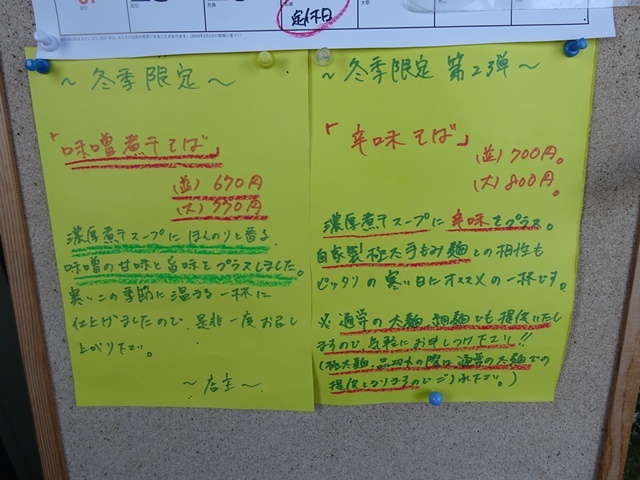 定休日
～冬季限定～
「味噌煮干そば」
(並) 670円
(大) 770円
濃厚煮干スープにほんのりと香る
味噌の甘味と旨味をプラスしました。
寒いこの季節に温まる一杯に
仕上げましたので、是非一度お召し
上がり下さい。
～店主～
～冬季限定 第2弾～
「辛味そば」
(並) 700円。
(大) 800円。
濃厚煮干スープに辛味をプラス。
自家製極太手もみ麺との相性も
ピッタリの寒い日にオススメの一杯です。
※通常の太麺、細麺でも提供いたし
ますので、気軽にお申しつけ下さい!!
(極太麺、品切れの際は通常の太麺での
提供となりますのでご了承下さい。)